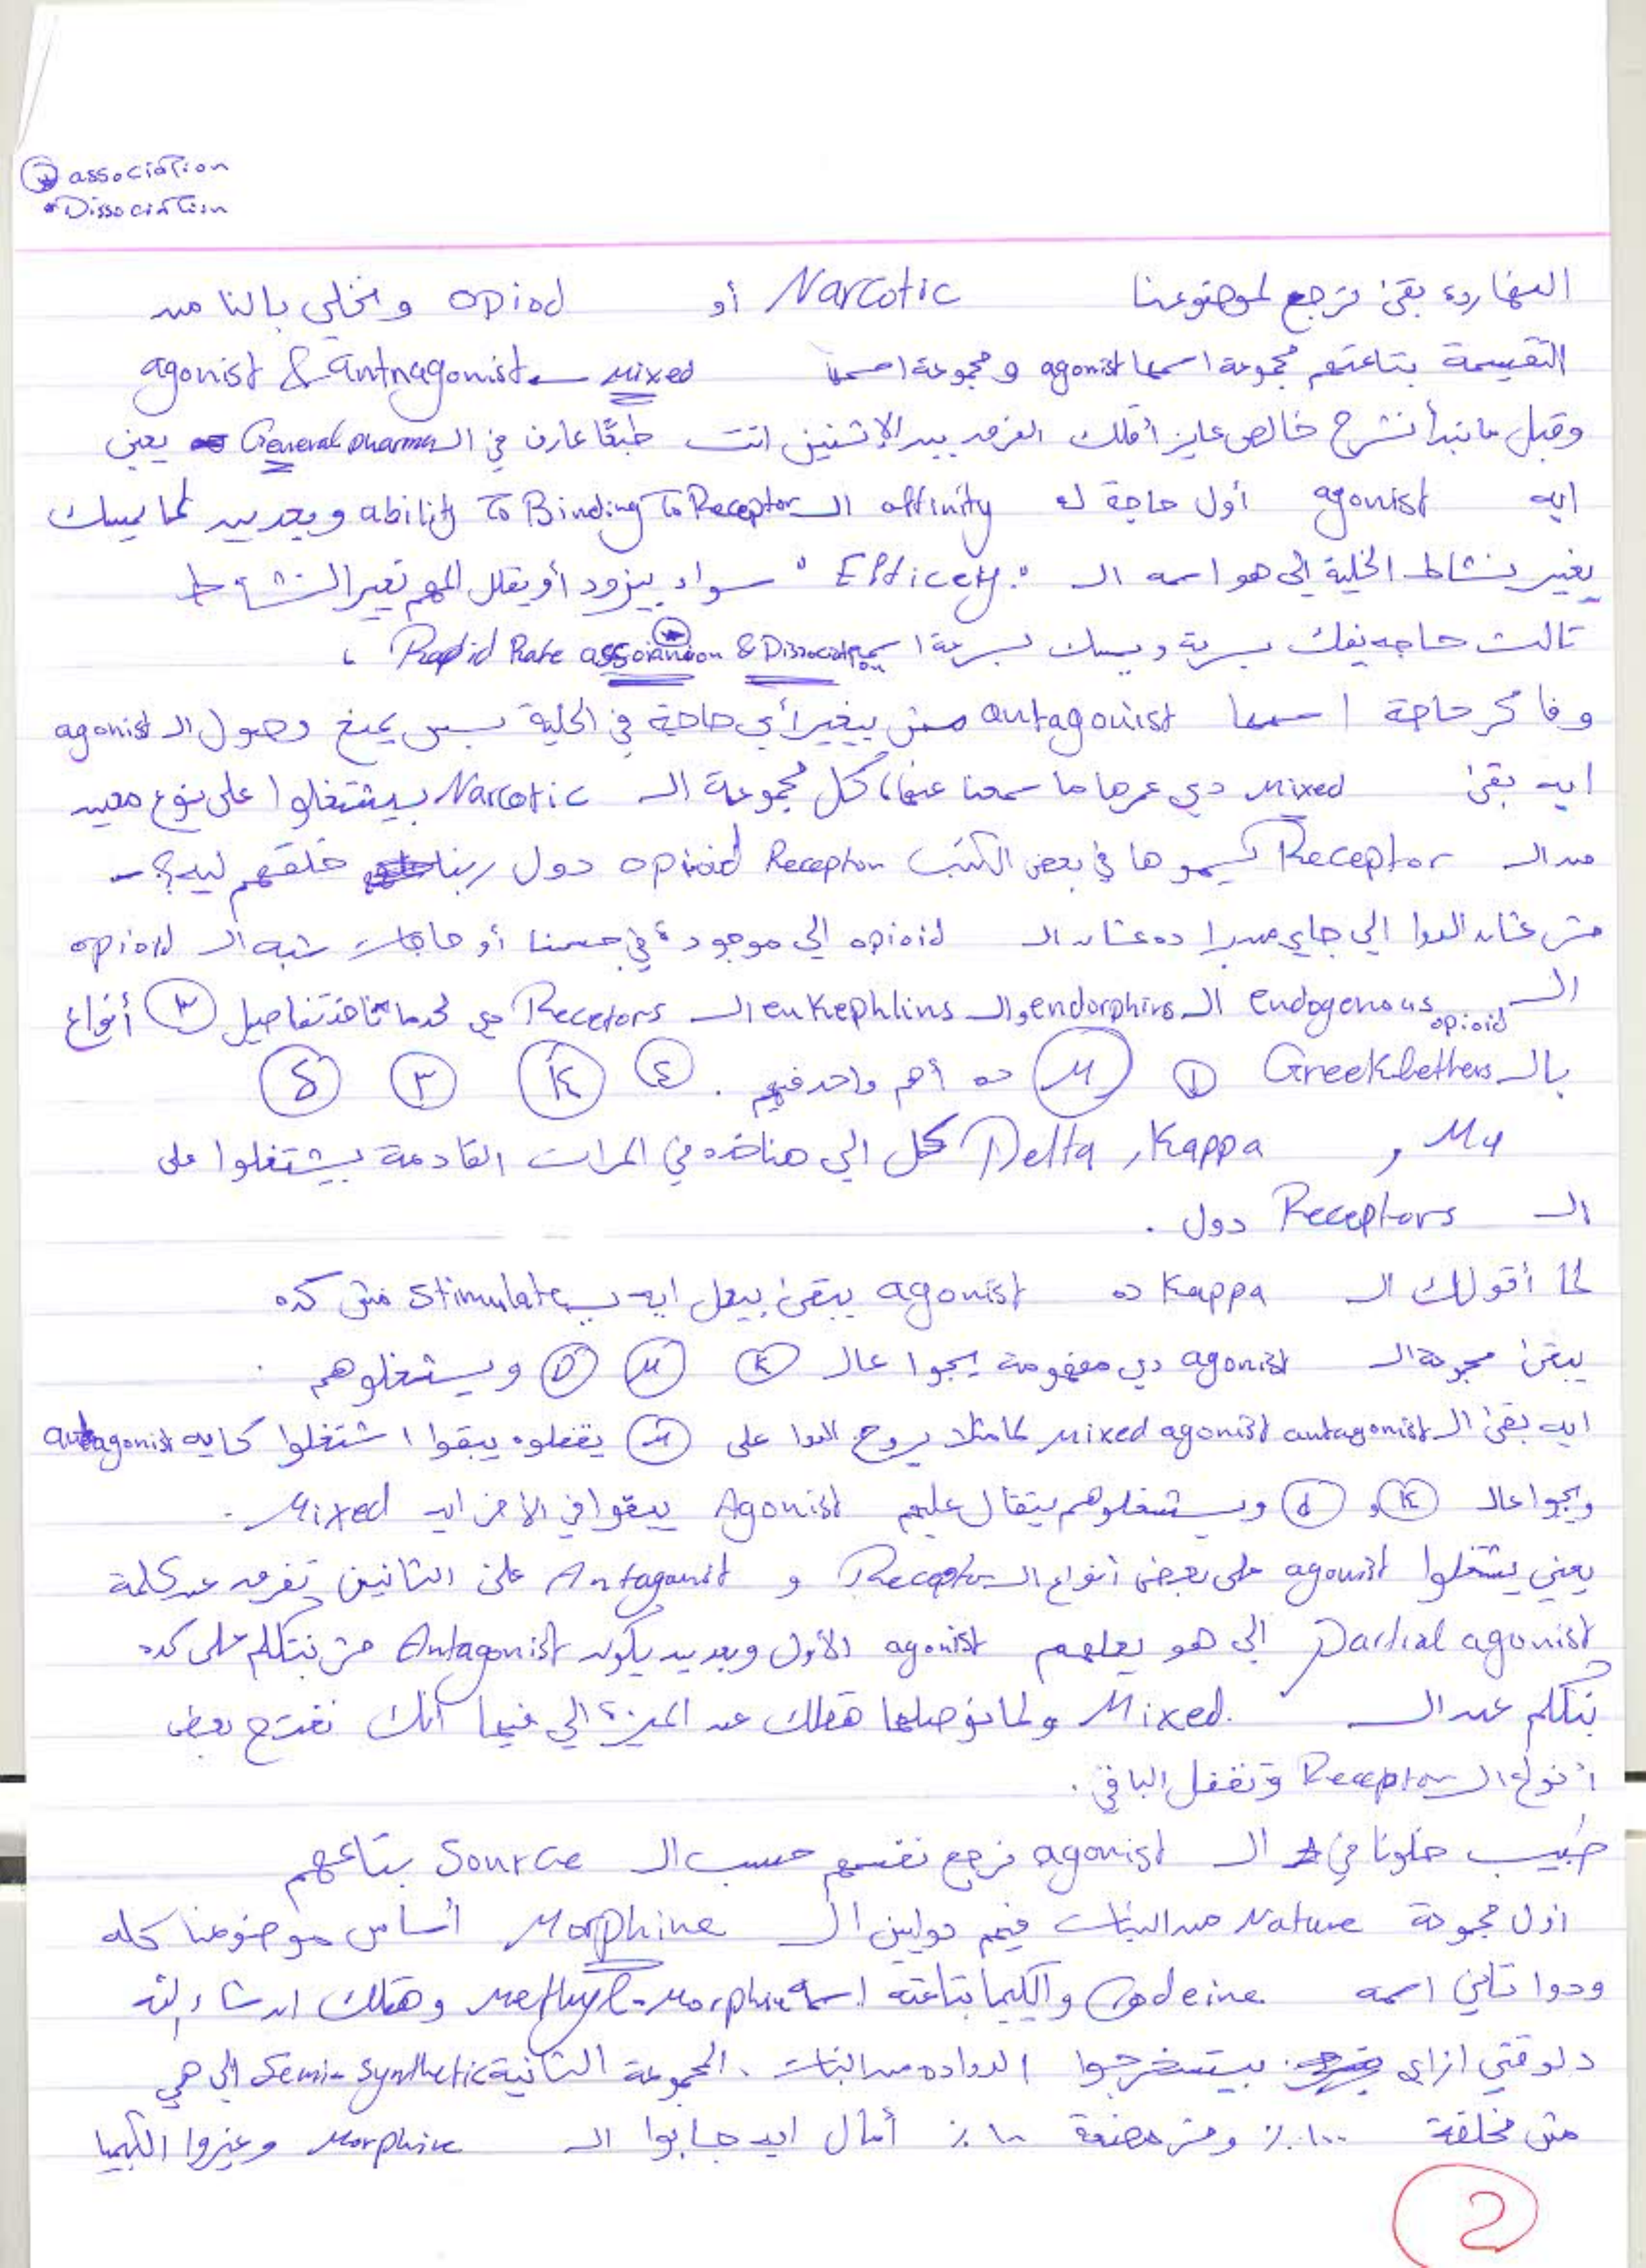 association
Dissociation
النهارده بقى نرجع لموضوعنا Narcotic أو opiod ونخلي بالنا من
التقسيمة بتاعتهم مجموعة اسمها agonist ومجموعة اسمها mixed agonist & antnagonist
وقبل ما نبدأ نشرح خالص عايز أقلك الفرق بين الإتنين انت طبعًا عارف في الـ General pharma يعني
ايه agonist أول حاجة له affinity الـ ability To Binding To Receptor وبعدين لما يمسك
يغير نشاط الخلية الي هو اسمه الـ "Efficety" سواء بيزود أو يقلل المهم تغير النشاط
تالت حاجه يفك بسرعة ويمسك بسرعة Rapid Rate association & Dissociation
وفاكر حاجة اسمها antagonist مش بيغير أي حاجة في الخلية بس يمنع وصول الـ agonist
ايه بقى mixed دي عمرها ما سمعنا عنها، كل مجموعة الـ Narcotic بيشتغلوا على نوع معين
من الـ Receptor يسموها في بعض الكتب opioid Receptor دول ربنا خلقهم ليه؟
مش عشان الدوا الي جاي من برا ده عشان الـ opioid الي موجودة في جسمنا أو حاجات شبه الـ opioid
الـ endogenous opioid الـ endorphins والـ enkephlins الـ Recetors دي لحد ما ناخد تفاصيل ٣ أنواع
بالـ Greek letters ١ M ده أهم واحد فيهم . ٤ K ٣ δ
Mu , Kappa, Delta كل الي هناخده في المرات القادمة بيشتغلوا على
الـ Receptors دول .
لما أقولك الـ Kappa ده agonist يبقى بيعمل ايه بـ stimulate مش كده
يبقى مجموعة الـ agonist دي مفهومة يجوا عالـ K M D ويشغلوهم .
ايه بقى الـ mixed agonist antagonist لما مثلا يروح الدوا على M يقفلوه يبقوا اشتغلوا كأيه antagonist
ويجوا عالـ K و d ويشغلوهم يتقال عليهم Agonist يبقوا في الأخر ايه Mixed .
يعني يشتغلوا agonist على بعض أنواع الـ Receptor و Antagonist على التانيين تفرق عن كلمة
Partial agonist الي هو يعملهم agonist الأول وبعدين يكون Antagonist مش نتكلم على كده
بنتكلم عن الـ Mixed. ولما نوصلها هقلك عن الميزة الي فيها انك تفتح بعض
أنواع الـ Receptor وتقفل الباقي .
طيب خلونا في الـ agonist نرجع نقسمهم حسب الـ Source بتاعهم
أول مجموعة Nature من النبات فيهم دولين الـ Morphine أساس موضوعنا كله
ودوا تاني اسمه Codeine والكيميا بتاعته اسمها Methyl-Morphine وهقلك ان شاء الله
دلوقتي ازاي بيستخرجوا الدوا ده من النبات . المجموعة التانية Semi-synthetic الي هي
مش مخلقة ١٠٠٪ ومش مصنعة ١٠٠٪ أمال ايه جابوا الـ Morphine وغيروا الكيميا
2